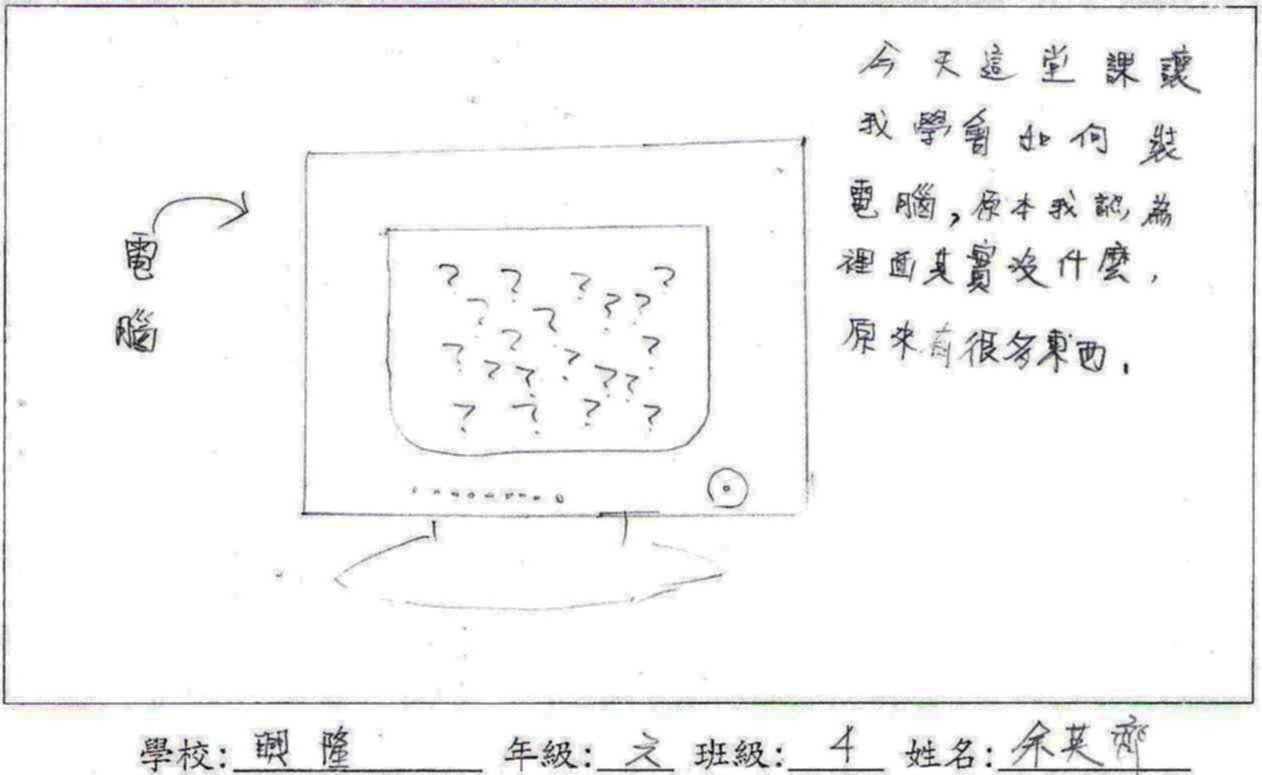 今天這堂課讓
我學會如何裝
電腦,原本我認為
裡面其實沒什麼,
原來有很多東西.
電腦
? ? ? ?
? ? ? ?
? ? ?
? ? ? ? ? ? ?
? ? ? ?
學校:興隆 年級:六 班級:4 姓名:余英齊